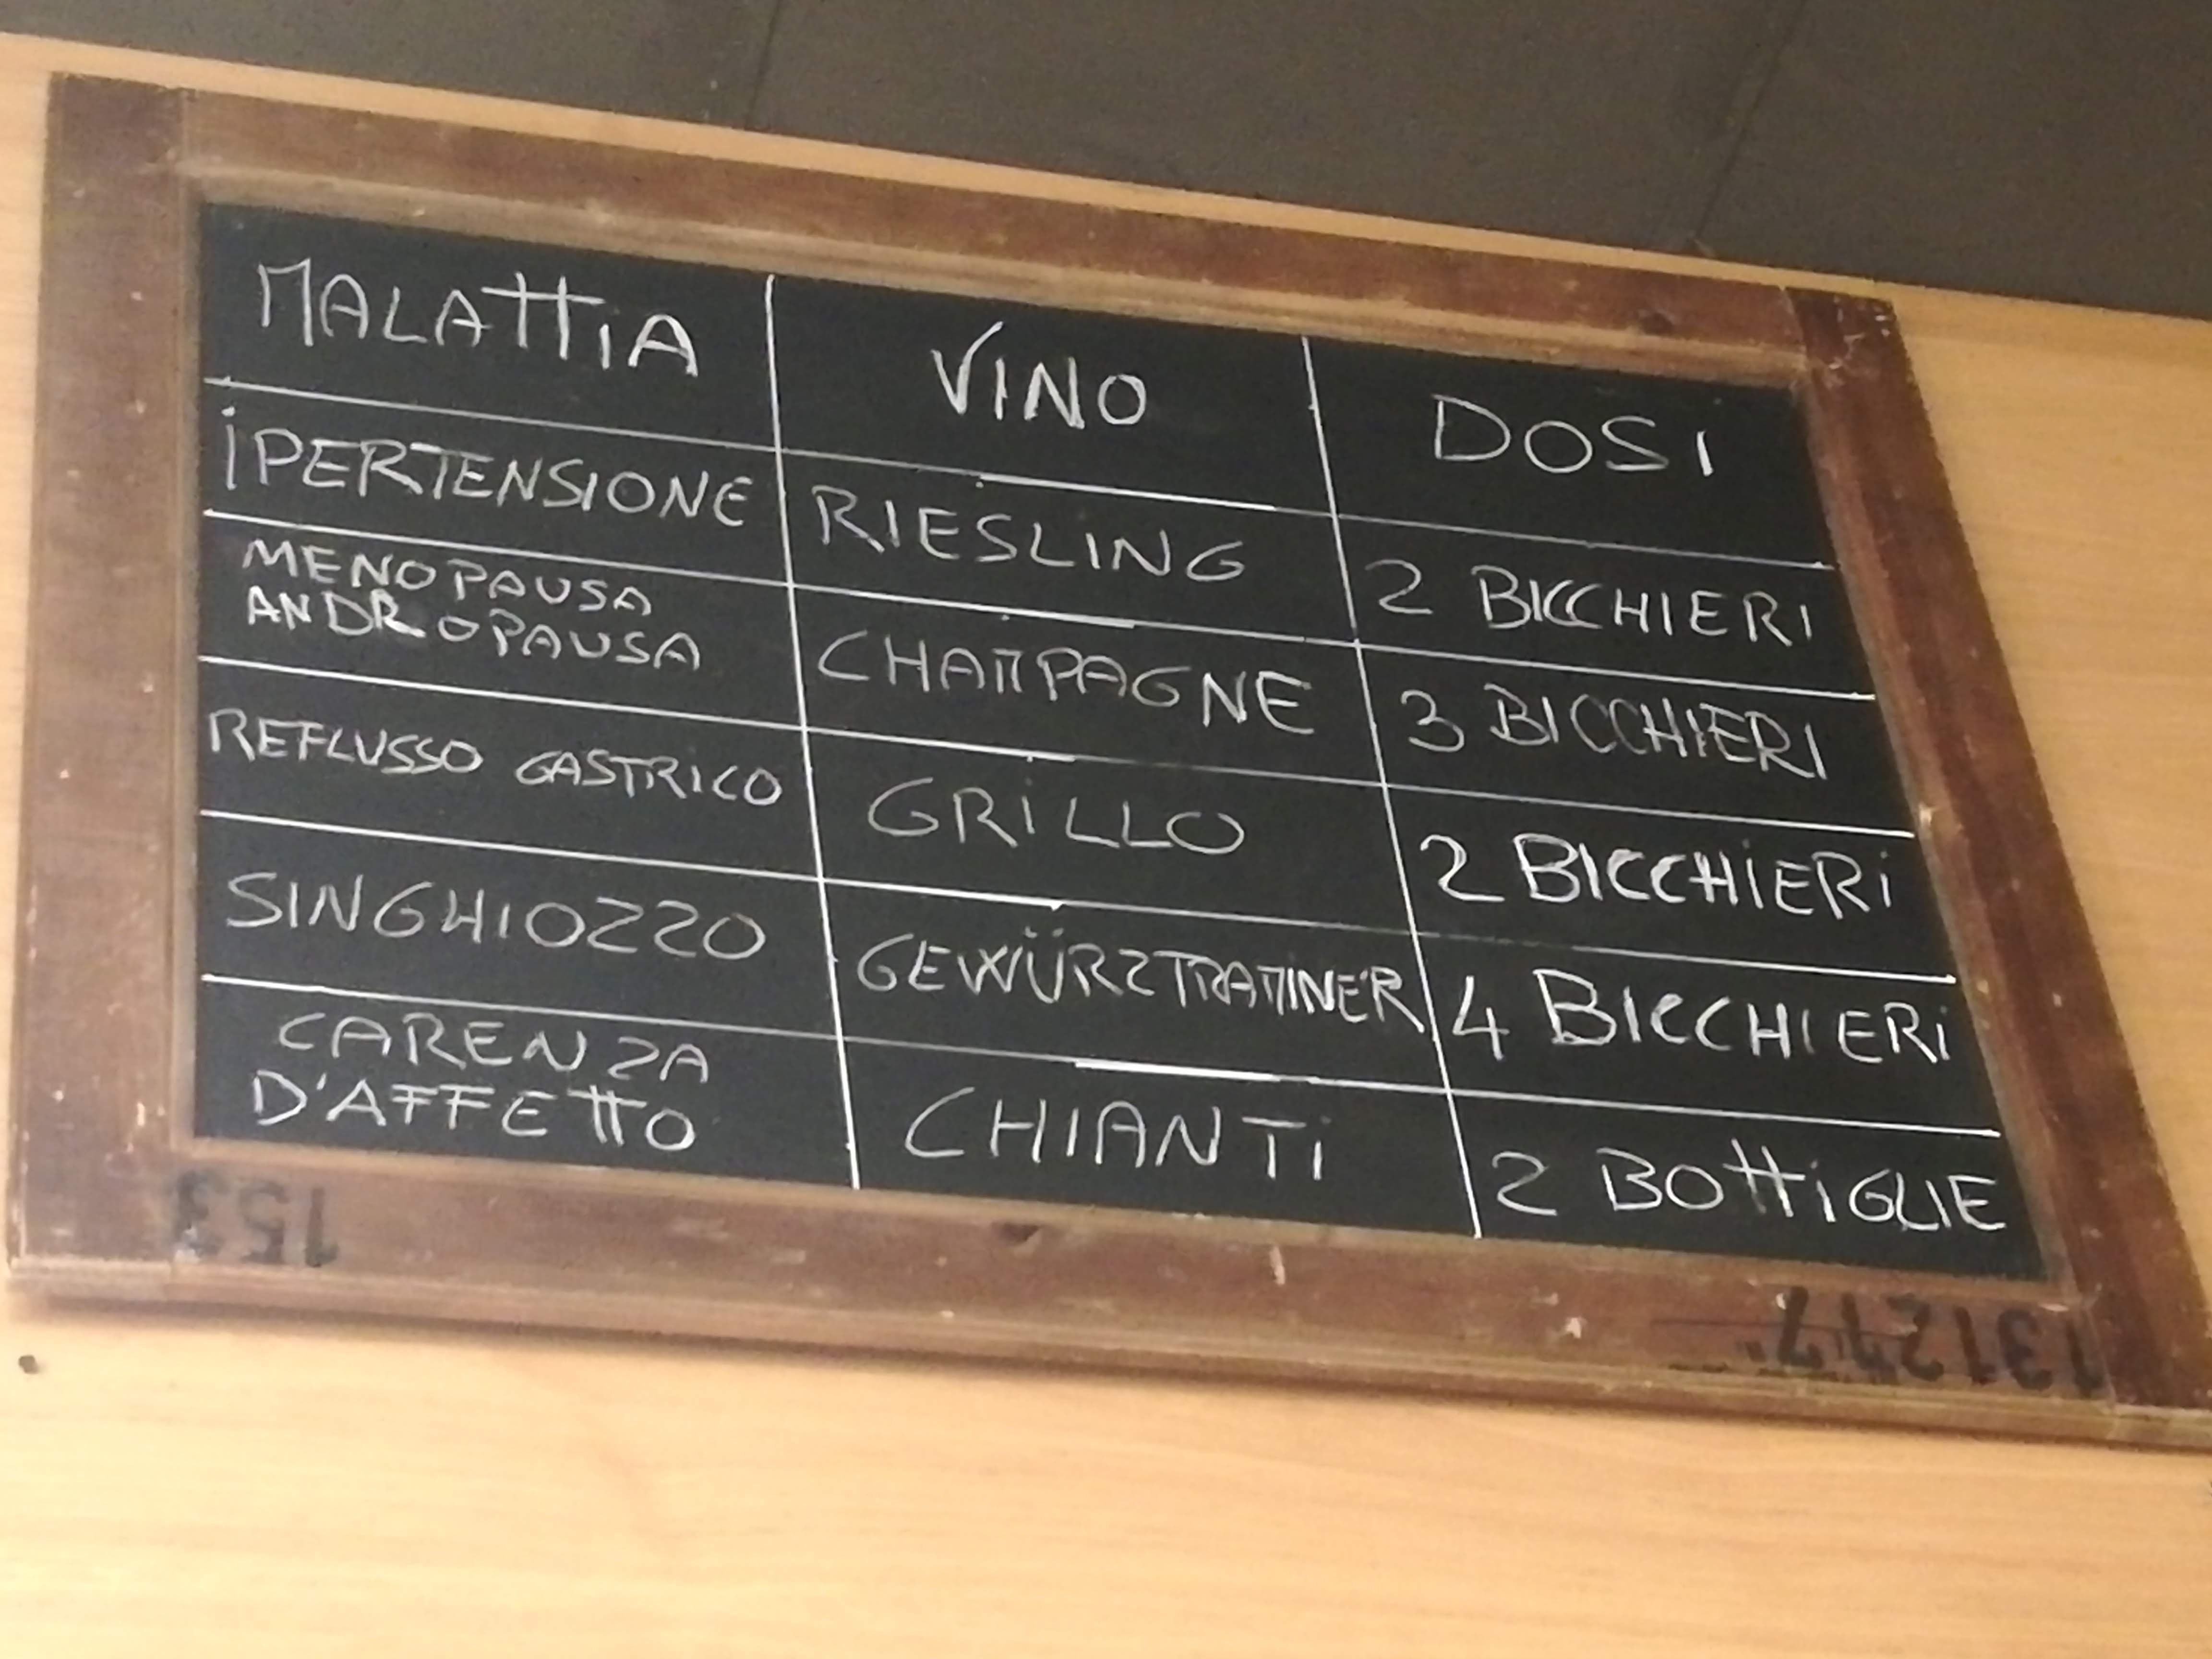 MALATTIA VINO DOSI
IPERTENSIONE RIESLING 2 BICCHIERI
MENOPAUSA
ANDROPAUSA CHAMPAGNE 3 BICCHIERI
REFLUSSO GASTRICO GRILLO 2 BICCHIERI
SINGHIOZZO GEWÜRZTRAMINER 4 BICCHIERI
CARENZA
D'AFFETTO CHIANTI 2 BOTTIGLIE
153